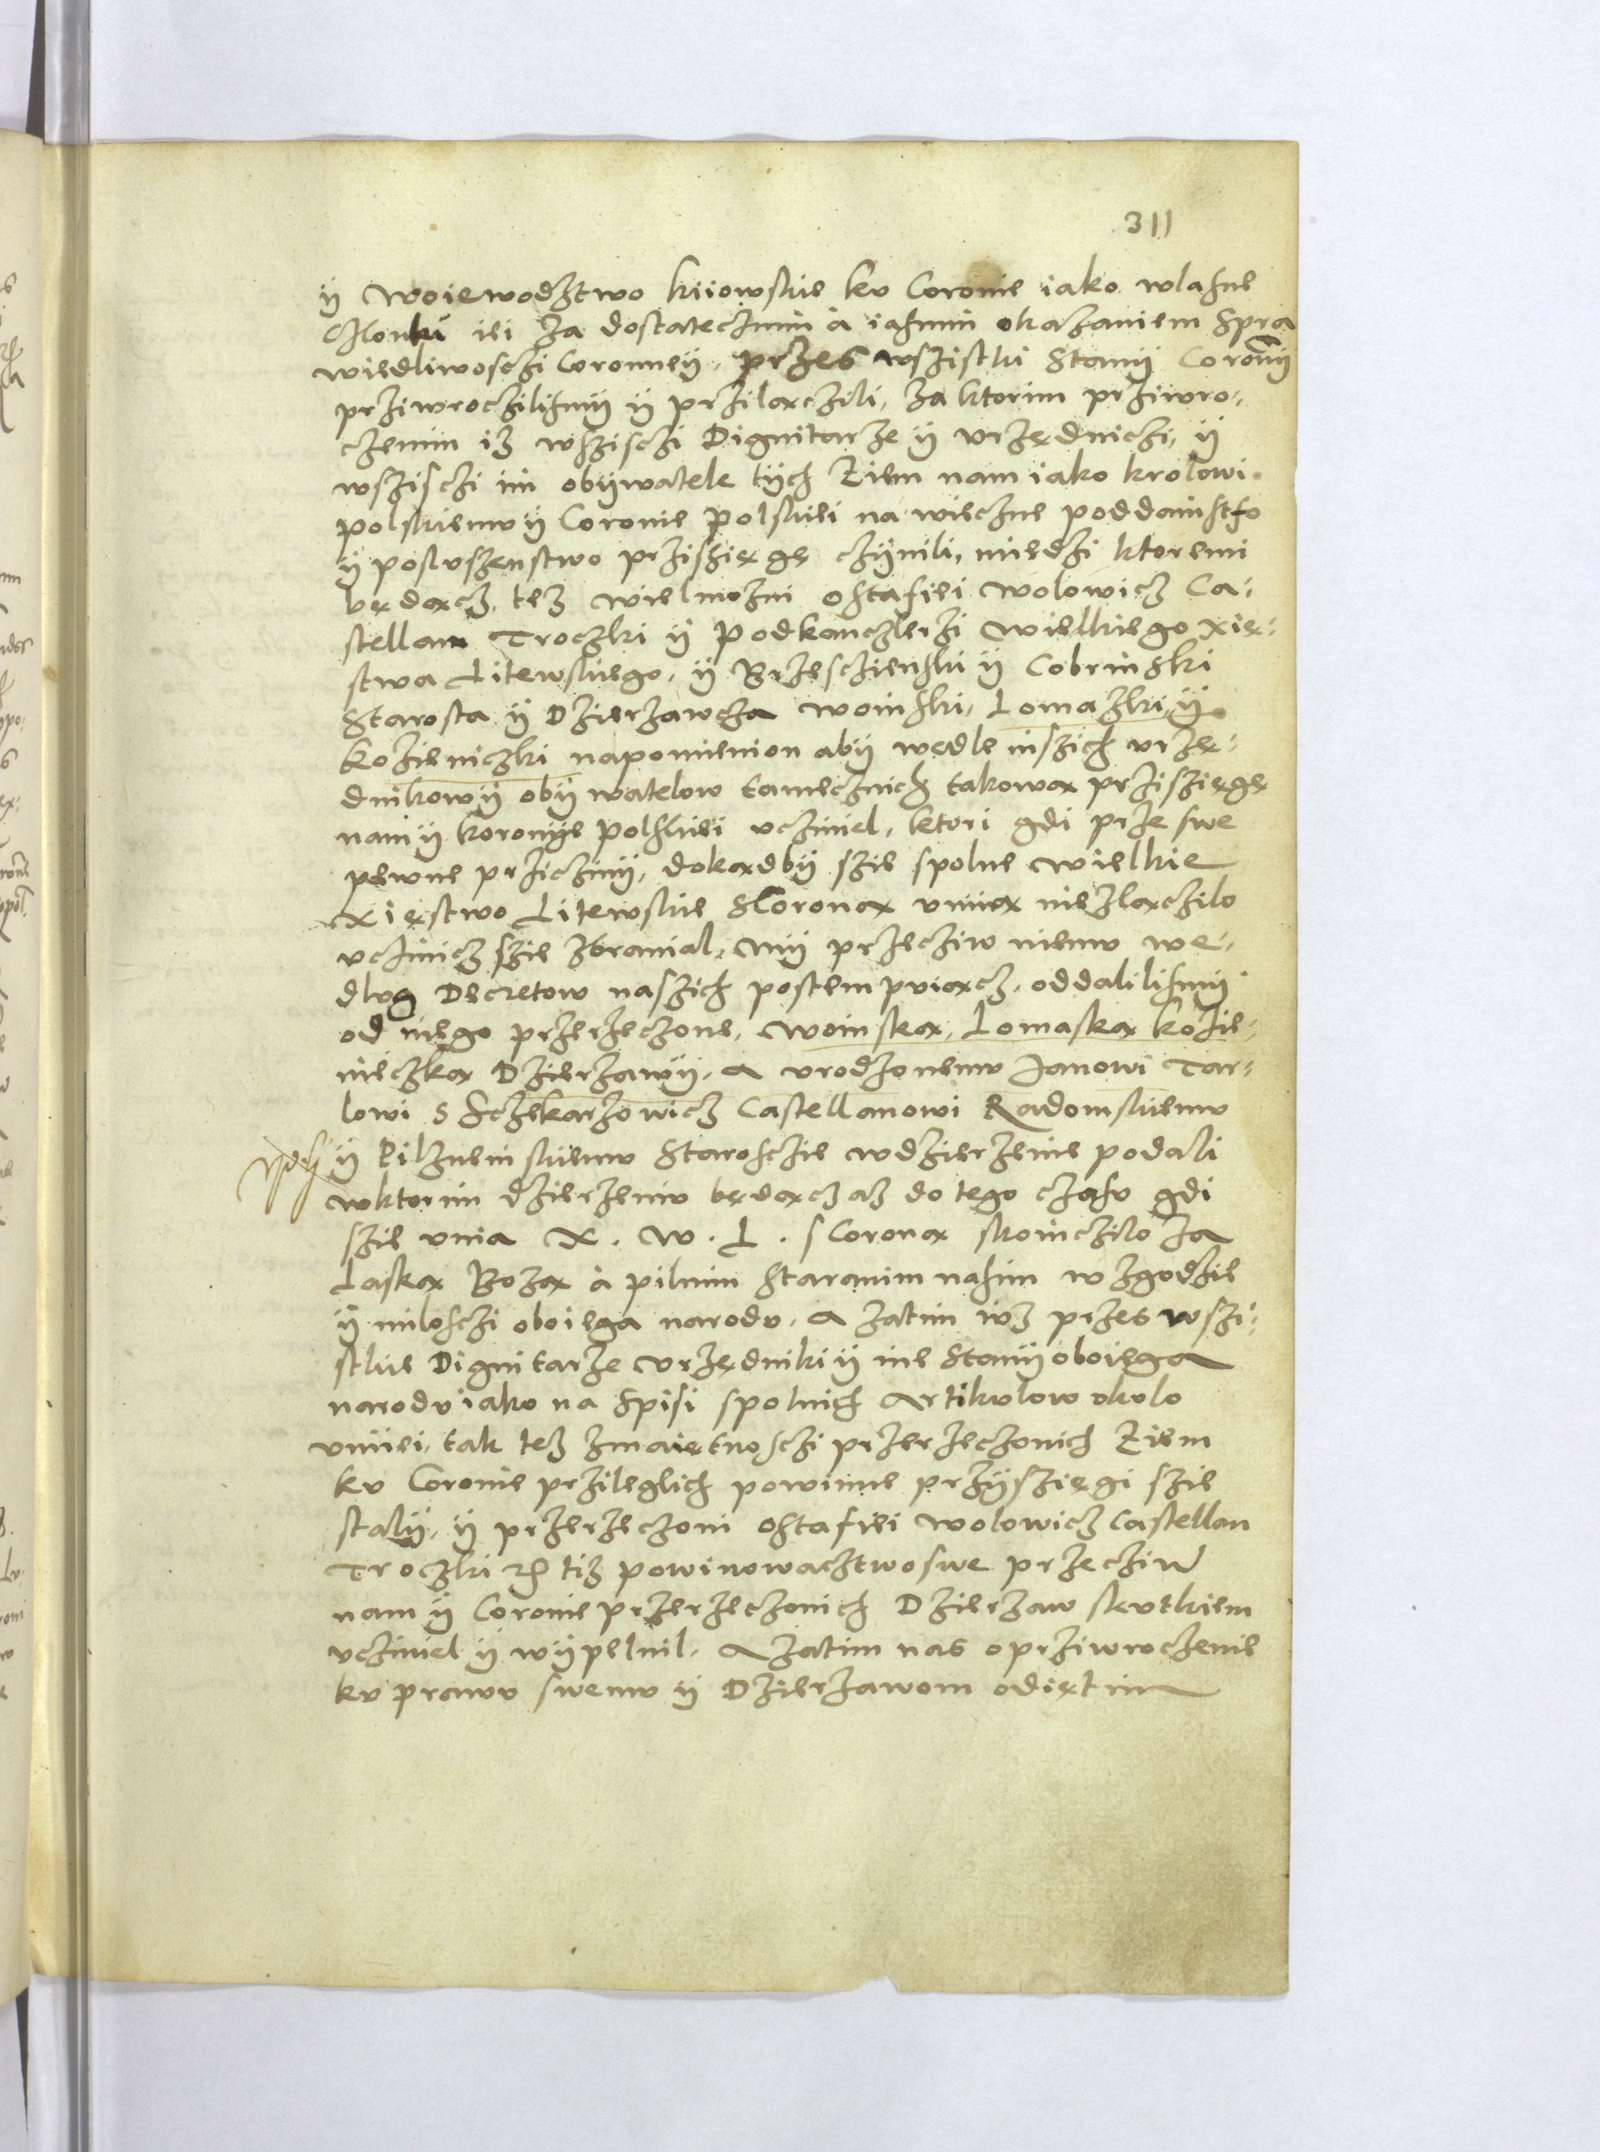 311
ÿ woiewodztwo kiiowskie ku Coronie iako wlasne
Czlonki iei za dostatecznim a iasnim okazaniem Spra
wiedliwosczi Coronneÿ, przes wszistki Stanÿ Coronÿ
prziwroczilismÿ ÿ przilączili, za ktorim prziwro-
czenim iz wszisczi Dignitarze ÿ urzędniczi, ÿ
wszisczi ini obÿwatele tÿch Ziem nam iako krolowi
polskiemu ÿ Coronie Polskiei na wieczne poddainstfo
ÿ posluszenstwo przisięgę czÿnili, miedzi ktoremi
będącz, tez wielmozni Ostafiei Wolowicz Ca-
stellan Troczki ÿ Podkanczlerzi Wielkiego Xię-
stwa Litewskiego, ÿ Brzesczienski ÿ Cobrinski
Starosta ÿ Dzierzawcza woinski, Lomazki, ÿ
kozieniczki napomienion abÿ wedle inszich urzę-
dnikow ÿ obÿwatelow tamecznich takową przisięgę
nam ÿ koronÿe Polskiei ucziniel, ktori gdi prze swe
pewne prziczinÿ, dokądbÿ szie spolne Wielkie
Xięstwo Litewskie sCoroną unią niezlączilo
uczinicz szie zbranial, mÿ przecziw niemu we-
dlug Decretow naszich postempuiącz, oddalilismÿ
od niego przerzeczone, woinską, Lomaską kozie-
nieczką Dzierzawÿ, a urodzonemu Janowi Tar-
lowi s Sczekarzowicz Castellanowi Radomskiemu
ÿ Pilzneinskiemu Starosczie wdzierzenie podali
wktorim dzierzeniu będącz az do tego czasu gdi
szie unia X. W. L. s Coroną skoinczilo za
Laską Bozą a pilnim Staranim nasim w zgodzie
ÿ milosczi oboiega narodu, a zatim iuz przes wszi-
stkie Dignitarze urzędniki ÿ ine Stanÿ oboiega
narodu iako na spisi spolnich Artikulow okolo
uniiei, tak tez zmaiętnosczi przerzeczonich Ziem
ku Coronie przileglich powinne przÿszięgi szie
stalÿ, ÿ przerzeczoni Ostafiei Wolowicz Castellan
Troczki tiz powinowacztwo swe przecziw
nam ÿ Coronie przerzeczonich Dzierzaw skutkiem
ucziniel ÿ wÿpelnil, Azatim nas o prziwroczenie
ku prawu swemu ÿ Dzierzawom odiętim